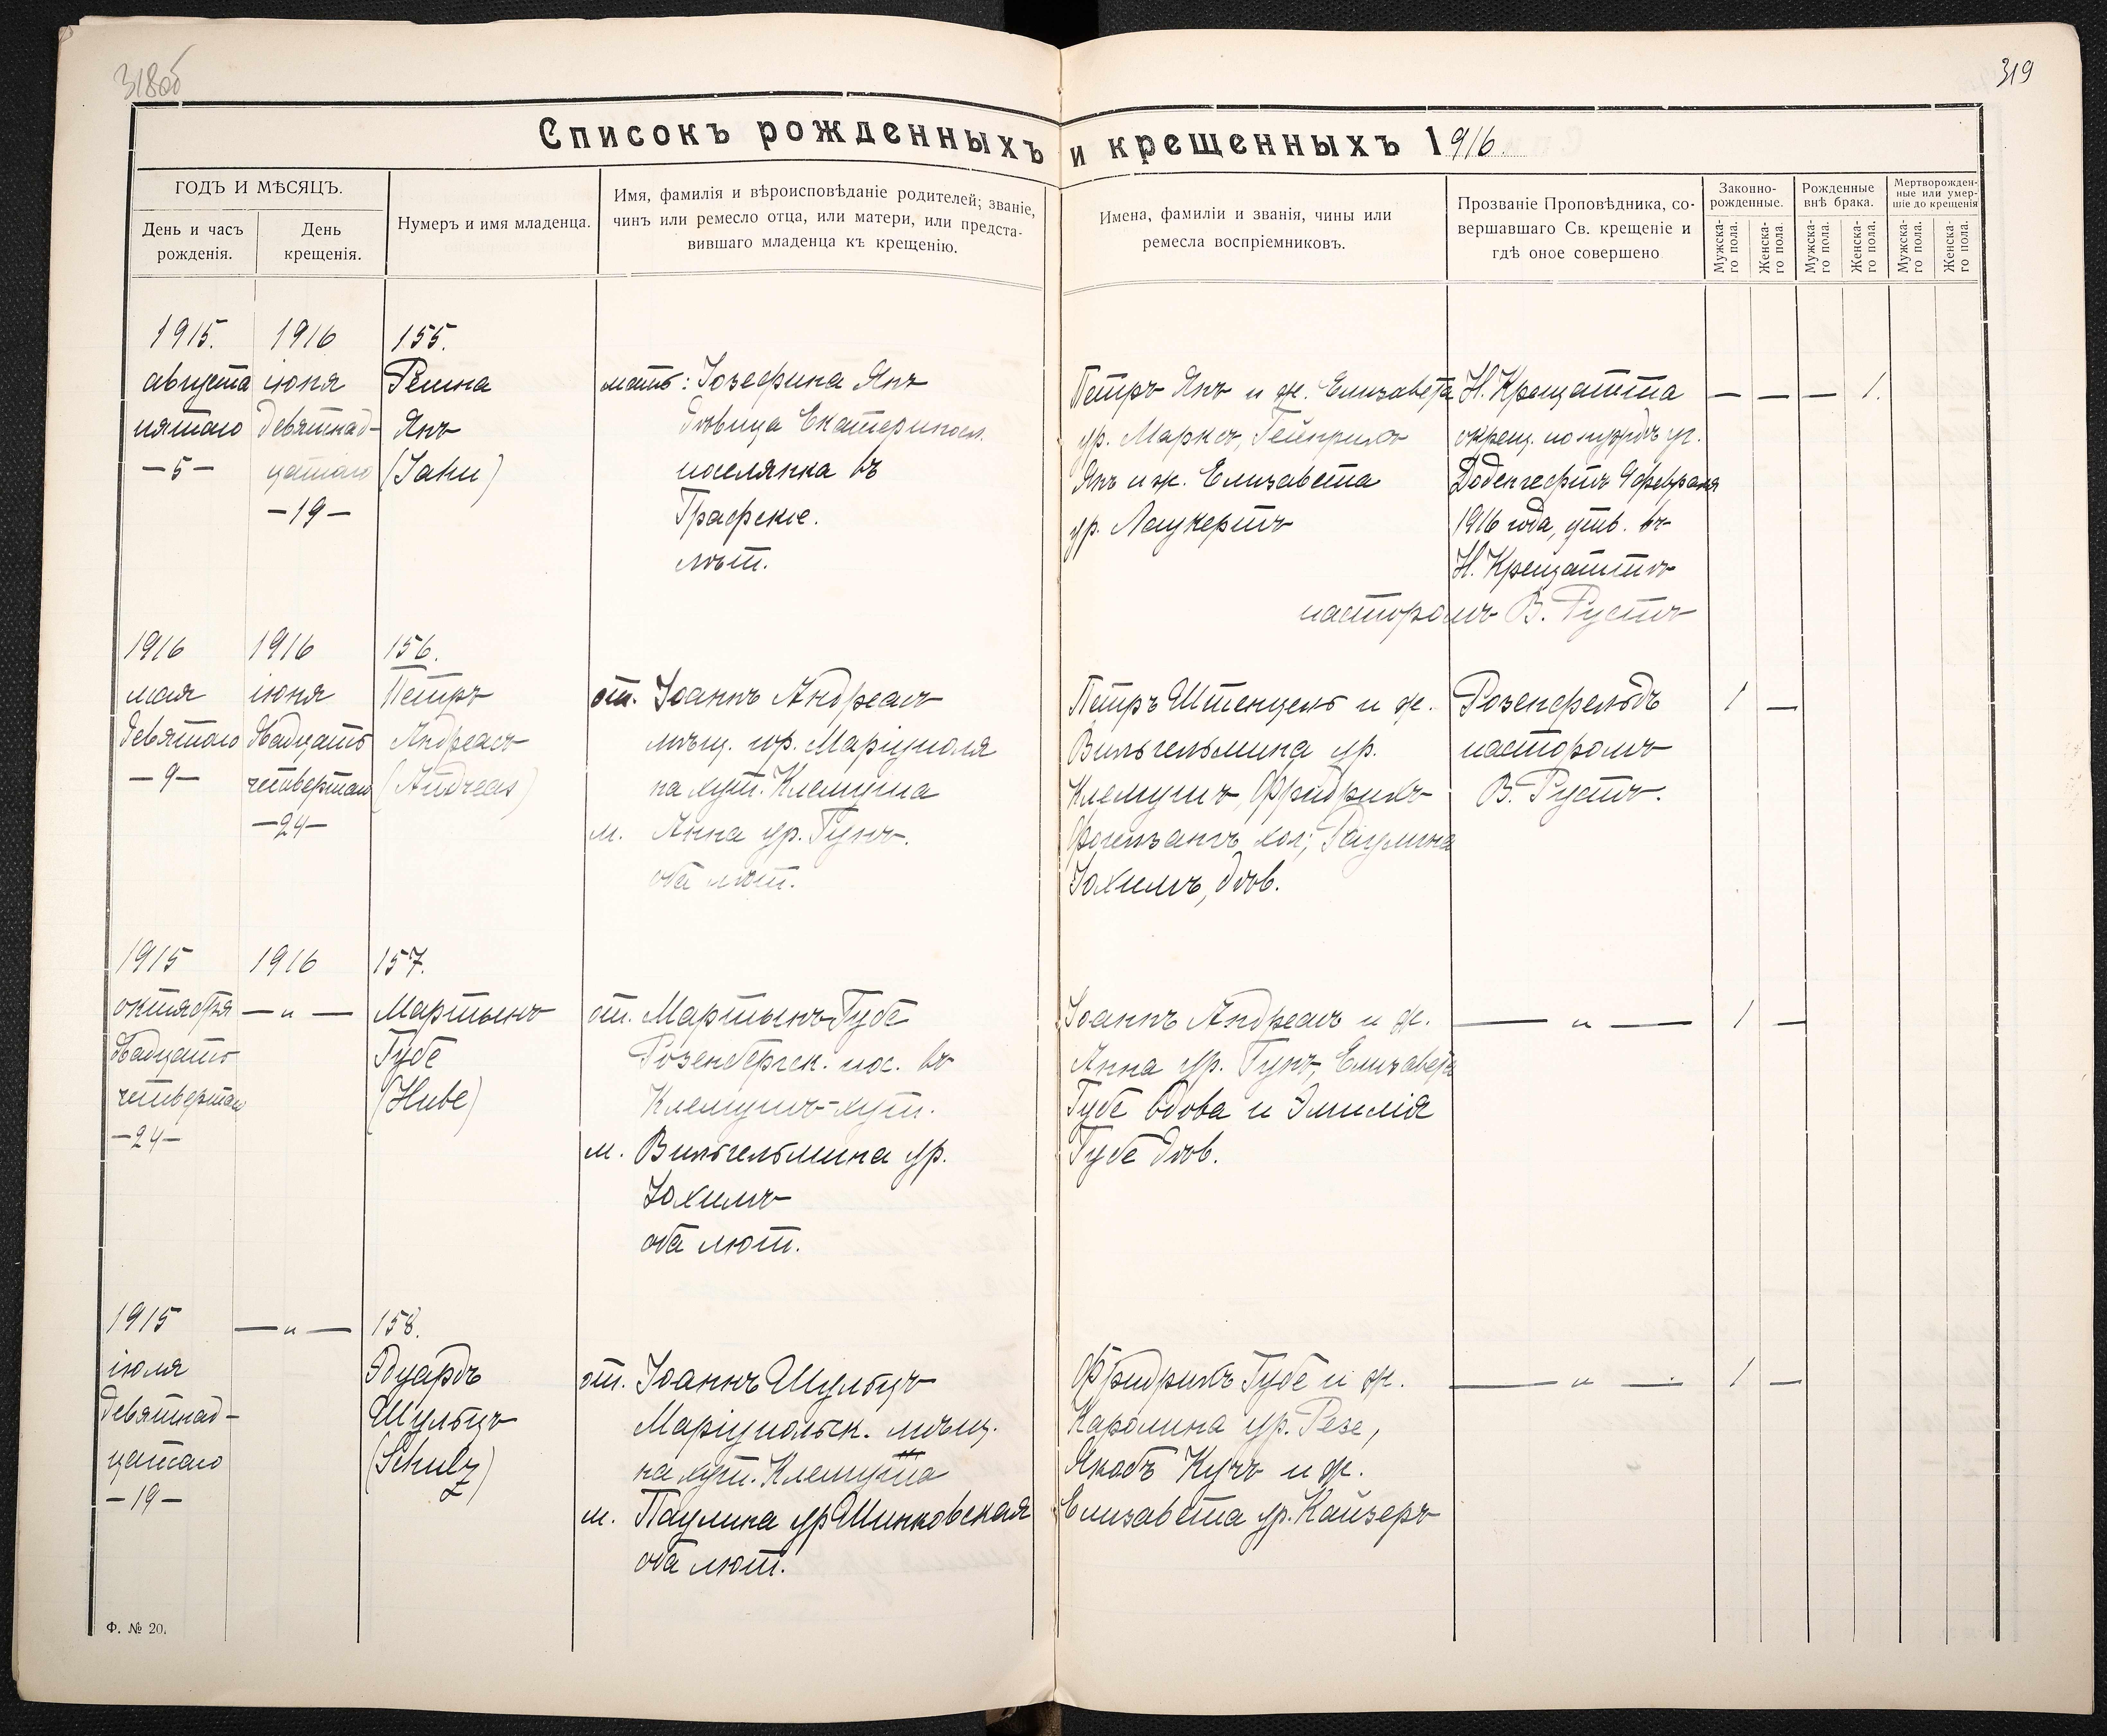 318об
319
Списокъ рожденныхъ и крещенныхъ 1916.
ГОДЪ И МѢСЯЦЪ.
День и часъ рожденія.
День крещенія.
Нумеръ и имя младенца.
Имя, фамилія и вѣроисповѣданіе родителей; званіе,
чинъ или ремесло отца, или матери, или предста-
вившаго младенца къ крещенію.
Имена, фамиліи и званія, чины или
ремесла воспріемниковъ.
Прозваніе Проповѣдника, со-
вершавшаго Св. крещеніе и
гдѣ оное совершено
Законно-
рожденные.
Рожденные
внѣ брака.
Мертворожден-
ные или умер-
шіе до крещенія
Мужска-
го пола.
Женска-
го пола.
Мужска-
го пола.
Женска-
го пола.
Мужска-
го пола.
Женска-
го пола.
1915.
августа
пятаго
—5—
1916
іюня
девятнад-
цатаго
—19—
155.
Янъ
(Jahn)
мать: Іозефина Янъ
дѣвица Екатериносл.
поселянка въ
Графское.
лют.
Петръ Янъ и ж. Елизавета
ур. Марксъ, Гейнрихъ
Янъ и ж. Елизавета
ур. Лаукертъ
Н. Крещатта
окрещ. по нуждѣ уч.
9 февраля
1916 года, утв. въ
Н. Крещаттѣ
пасторомъ В. Густъ
— — — 1.
1916
мая
девятаго
—9—
1916
іюня
двадцать
четвертаго
—24—
156.
Петръ
Андреасъ
(Andreas)
от. Іоаннъ Андреасъ
мѣщ. гор. Маріуполя
на хут. Клемуша
м. Анна ур. Гунъ.
оба лют.
Петръ Штенцель и ж.
Вильгельмина ур.
Клемушъ, Фридрихъ
Фогельзангъ, хол.; Паулина
Іохимъ, дѣв.
Розенфельдъ
пасторомъ
В. Густъ.
1 —
1915
октября
двадцать
четвертаго
—24—
1916
— „ —
157.
Мартынъ
Губе
(Hube)
от. Мартынъ Губе
Розенбергск. пос. въ
Клемушъ-хут.
м. Вильгельмина ур.
Іохимъ
оба лют.
Іоаннъ Андреасъ и ж.
Анна ур. Гунъ, Елизавета
Губе вдова и Эмилія
Губе дѣв.
— „ —
1 —
1915
іюля
девятнад-
цатаго
—19—
— „ —
158.
Эдуардъ
Шульцъ
(Schulz)
от. Іоаннъ Шульцъ
Маріупольск. мѣщ.
на хут. Клемуша
м. Паулина ур Шинковская
оба лют.
Фридрихъ Губе и ж.
Каролина ур. Резе,
Якобъ Кучъ и ж.
Елизавета ур. Кайзеръ
— „ —
1 —
Ф. № 20.